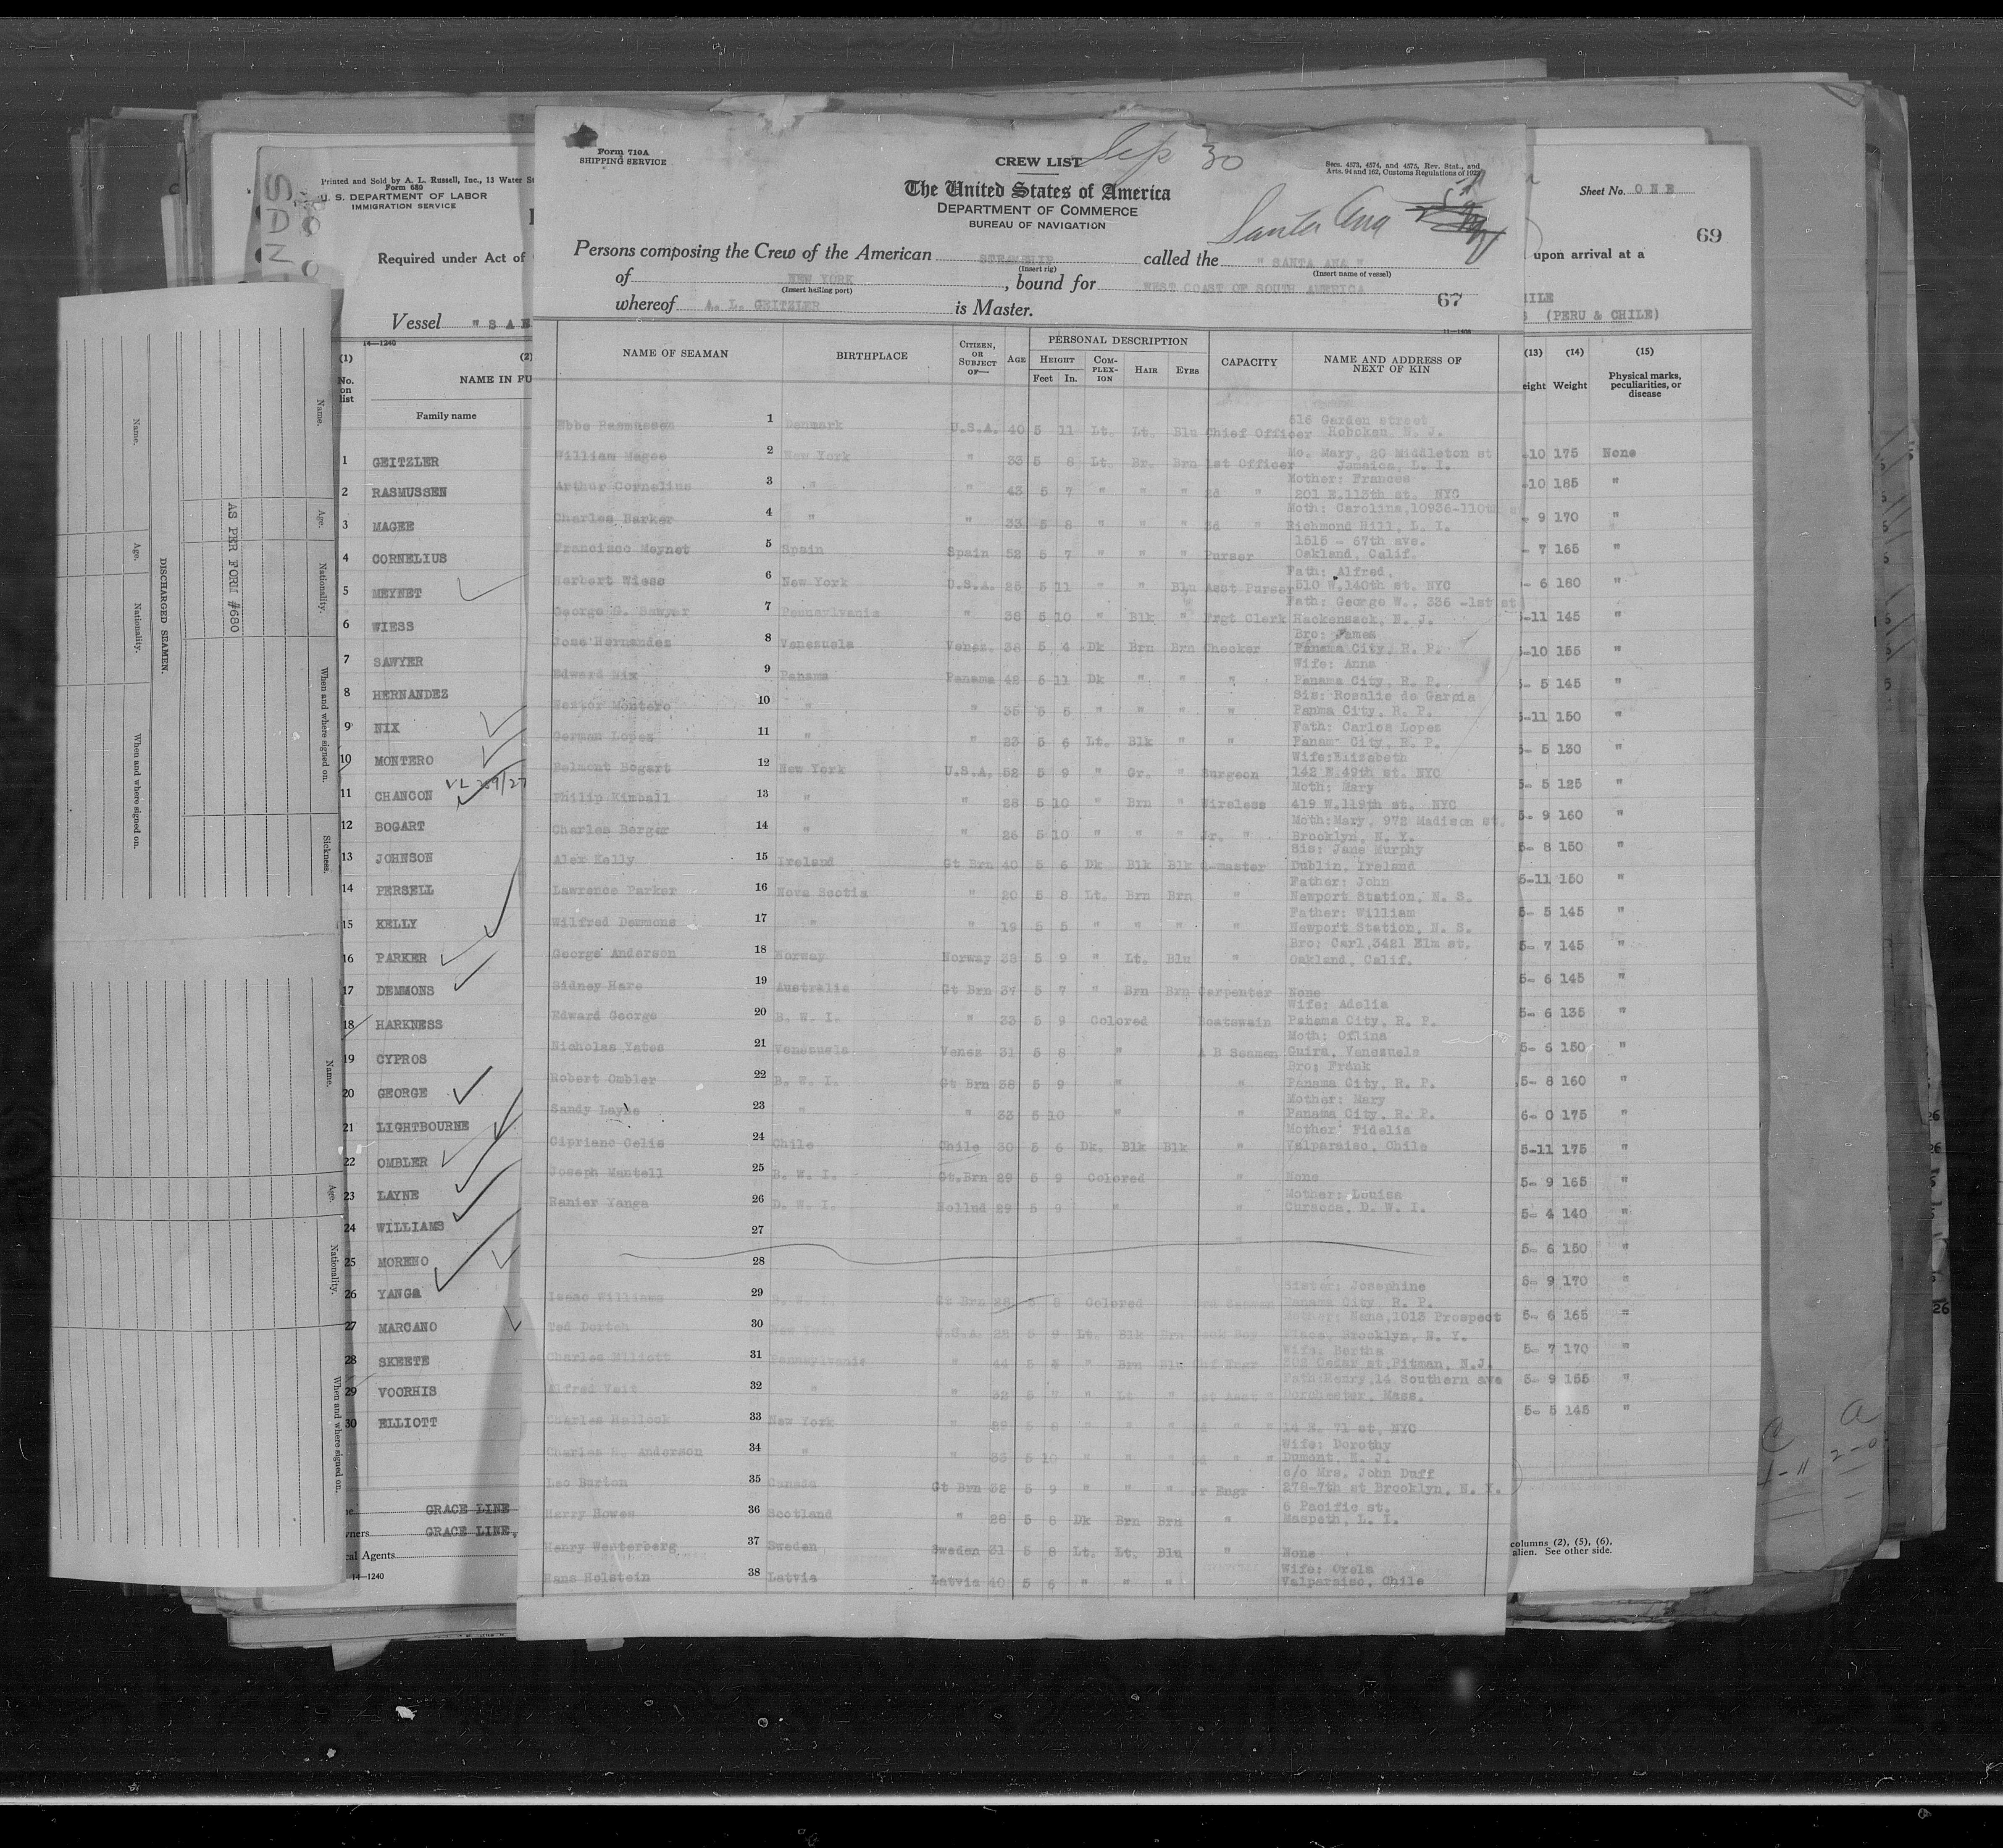 Form 710A
SHIPPING SERVICE
CREW LIST
Sep 30
Secs. 4573, 4574, and 4575, Rev. Stat., and
Arts. 94 and 102, Customs Regulations of 1923
The United States of America
DEPARTMENT OF COMMERCE
BUREAU OF NAVIGATION
Santa Ana
Persons composing the Crew of the American STEAMSHIP called the "SANTA ANA"
(Insert rig) (Insert name of vessel)
of NEW YORK, bound for WEST COAST OF SOUTH AMERICA
(Insert hailing port)
67
whereof A. L. GEITZLER is Master.
11—1405
NAME OF SEAMAN BIRTHPLACE CITIZEN, OR SUBJECT OF— AGE PERSONAL DESCRIPTION CAPACITY NAME AND ADDRESS OF NEXT OF KIN
HEIGHT COMPLEXION HAIR EYES
Feet In.
616 Garden street
Ebbe Rasmussen 1 Denmark U.S.A. 40 5 11 Lt. Lt. Blu Chief Officer Hoboken, N. J.
William Magee 2 New York " 33 5 8 Lt. Br. Brn 1st Officer Mo. Mary, 20 Middleton st
Jamaica, L. I.
Arthur Cornelius 3 " " 43 5 7 " " " 2d " Mother: Frances
201 E.113th st. NYC
Charles Barker 4 " " 33 5 8 " " " 3d " Moth: Carolina,10936-110th
Richmond Hill, L. I.
Francisco Meynet 5 Spain Spain 52 5 7 " " " Purser 1515 - 67th ave.
Oakland, Calif.
Herbert Wiess 6 New York U.S.A. 25 5 11 " " Blu Asst Purser Fath: Alfred,
510 W.140th st. NYC
George G. Sawyer 7 Pennsylvania " 38 5 10 " Blk " Frgt Clerk Fath: George W., 336 -1st st
Hackensack, N. J.
Jose Hernandez 8 Venezuela Venez. 38 5 4 Dk Brn Brn Checker Bro: James
Panama City, R. P.
Edward Nix 9 Panama Panama 42 5 11 Dk " " " Wife: Anna
Panama City, R. P.
Nestor Montero 10 " " 35 5 5 " " " " Sis: Rosalie de Garcia
Panma City, R. P.
German Lopez 11 " " 23 5 6 Lt. Blk " " Fath: Carlos Lopez
Panam City, R. P.
Belmont Bogart 12 New York U.S.A. 52 5 9 " Gr. " Surgeon Wife:Elizabeth
142 E.49th st. NYC
Philip Kimball 13 " " 28 5 10 " Brn " Wireless Moth: Mary
419 W.119th st. NYC
Charles Berger 14 " " 26 5 10 " " " Jr. " Moth:Mary, 972 Madison st.
Brooklyn, N. Y.
Alex Kelly 15 Ireland Gt Brn 40 5 6 Dk Blk Blk Q-master Sis: Jane Murphy
Dublin, Ireland
Lawrence Parker 16 Nova Scotia " 20 5 8 Lt. Brn Brn " Father: John
Newport Station, N. S.
Wilfred Demmons 17 " " 19 5 5 " " " " Father: William
Newport Station, N. S.
George Anderson 18 Norway Norway 38 5 9 " Lt. Blu " Bro: Carl,3421 Elm st.
Oakland, Calif.
Sidney Hare 19 Australia Gt Brn 5 7 " Brn Brn Carpenter None
Edward George 20 B. W. I. " 33 5 9 Colored Boatswain Wife: Adelia
Panama City, R. P.
Nicholas Yates 21 Venezuela Venez 31 5 8 " A B Seaman Moth: Oflina
Guira, Venezuela
Robert Ombler 22 B. W. I. Gt Brn 38 5 9 " " Bro: Frank
Panama City, R. P.
Sandy Layne 23 " " 33 5 10 " " Mother: Mary
Panama City, R. P.
Cipriano Celis 24 Chile Chile 30 5 6 Dk. Blk Blk " Mother: Fidelia
Valparaiso, Chile
Joseph Mantell 25 B. W. I. Gt.Brn 29 5 9 Colored " None
Ranier Yanga 26 D. W. I. Hollnd 29 5 9 " " Mother: Louisa
Curacca, D. W. I.
27
28
Isaac Williams 29 Gt Brn 28 Colored Sister: Josephine
Panama City, R. P.
Ted Dortch 30 New York U.S.A. 22 5 9 Lt. Blk Brn Deck Boy Mother: Nana,1013 Prospect
Place, Brooklyn, N. Y.
Charles Elliott 31 Pennsylvania " 44 5 8 " Brn Blu Chf Engr Wife: Bertha
Cedar st.Pitman, N.J.
Alfred Veit 32 " " 32 5 7 " Lt " 1st Asst " Fath:Henry,14 Southern ave
Dorchester, Mass.
Charles Hallock 33 New York " 29 5 8 " " " 2d " " 14 E. 71 st, NYC
Charles R. Anderson 34 " " 36 5 10 " " " 3d " " Wife: Dorothy
Dumont, N. J.
Leo Burton 35 Canada Gt Brn 32 5 9 " " " Jr Engr c/o Mrs. John Duff
278-7th st Brooklyn, N. Y.
Harry Howes 36 Scotland " 28 5 8 Dk Brn Brn " 6 Pacific st.
Maspeth, L. I.
Henry Westerberg 37 Sweden Sweden 31 5 8 Lt. Lt. Blu " None
Hans Holstein 38 Latvia Latvia 40 5 6 " " " Wife: Orela
Valparaiso, Chile
Printed and Sold by A. L. Russell, Inc., 13 Water St
Form 680
U. S. DEPARTMENT OF LABOR
IMMIGRATION SERVICE
Required under Act of
Vessel "SAN
14—1240
(1) (2)
No. on list NAME IN FU
Family name
1 GEITZLER
2 RASMUSSEN
3 MAGEE
4 CORNELIUS
5 MEYNET
6 WIESS
7 SAWYER
8 HERNANDEZ
9 NIX
10 MONTERO
11 CHANCON
12 BOGART
13 JOHNSON
14 PERSELL
15 KELLY
16 PARKER
17 DEMMONS
18 HARKNESS
19 CYPROS
20 GEORGE
21 LIGHTBOURNE
22 OMBLER
23 LAYNE
24 WILLIAMS
25 MORENO
26 YANGA
27 MARCANO
28 SKEETE
29 VOORHIS
30 ELLIOTT
GRACE LINE
wners GRACE LINE,
cal Agents
14—1240
Sheet No. ONE
69
upon arrival at a
(PERU & CHILE)
(13) (14) (15)
eight Weight Physical marks, peculiarities, or disease
-10 175 None
-10 185 "
- 9 170 "
- 7 165 "
- 6 160 "
-11 145 "
-10 155 "
- 5 145 "
-11 150 "
- 5 130 "
5- 5 125 "
5- 9 160 "
5- 8 150 "
5-11 150 "
5- 5 145 "
5- 7 145 "
5- 6 145 "
5- 6 135 "
5- 6 150 "
5- 8 160 "
6- 0 175 "
5-11 175 "
5- 9 165 "
5- 4 140 "
5- 6 150 "
5- 9 170 "
5- 6 165 "
5- 7 170 "
5- 9 155 "
5- 5 145 "
columns (2), (5), (6),
alien. See other side.
DISCHARGED SEAMEN.
AS PER FORM #680
Name. Age. Nationality. When and where signed on. Sickness.
Name. Age. Nationality. When and where signed on.
Name. Age. Nationality. When and where signed on.